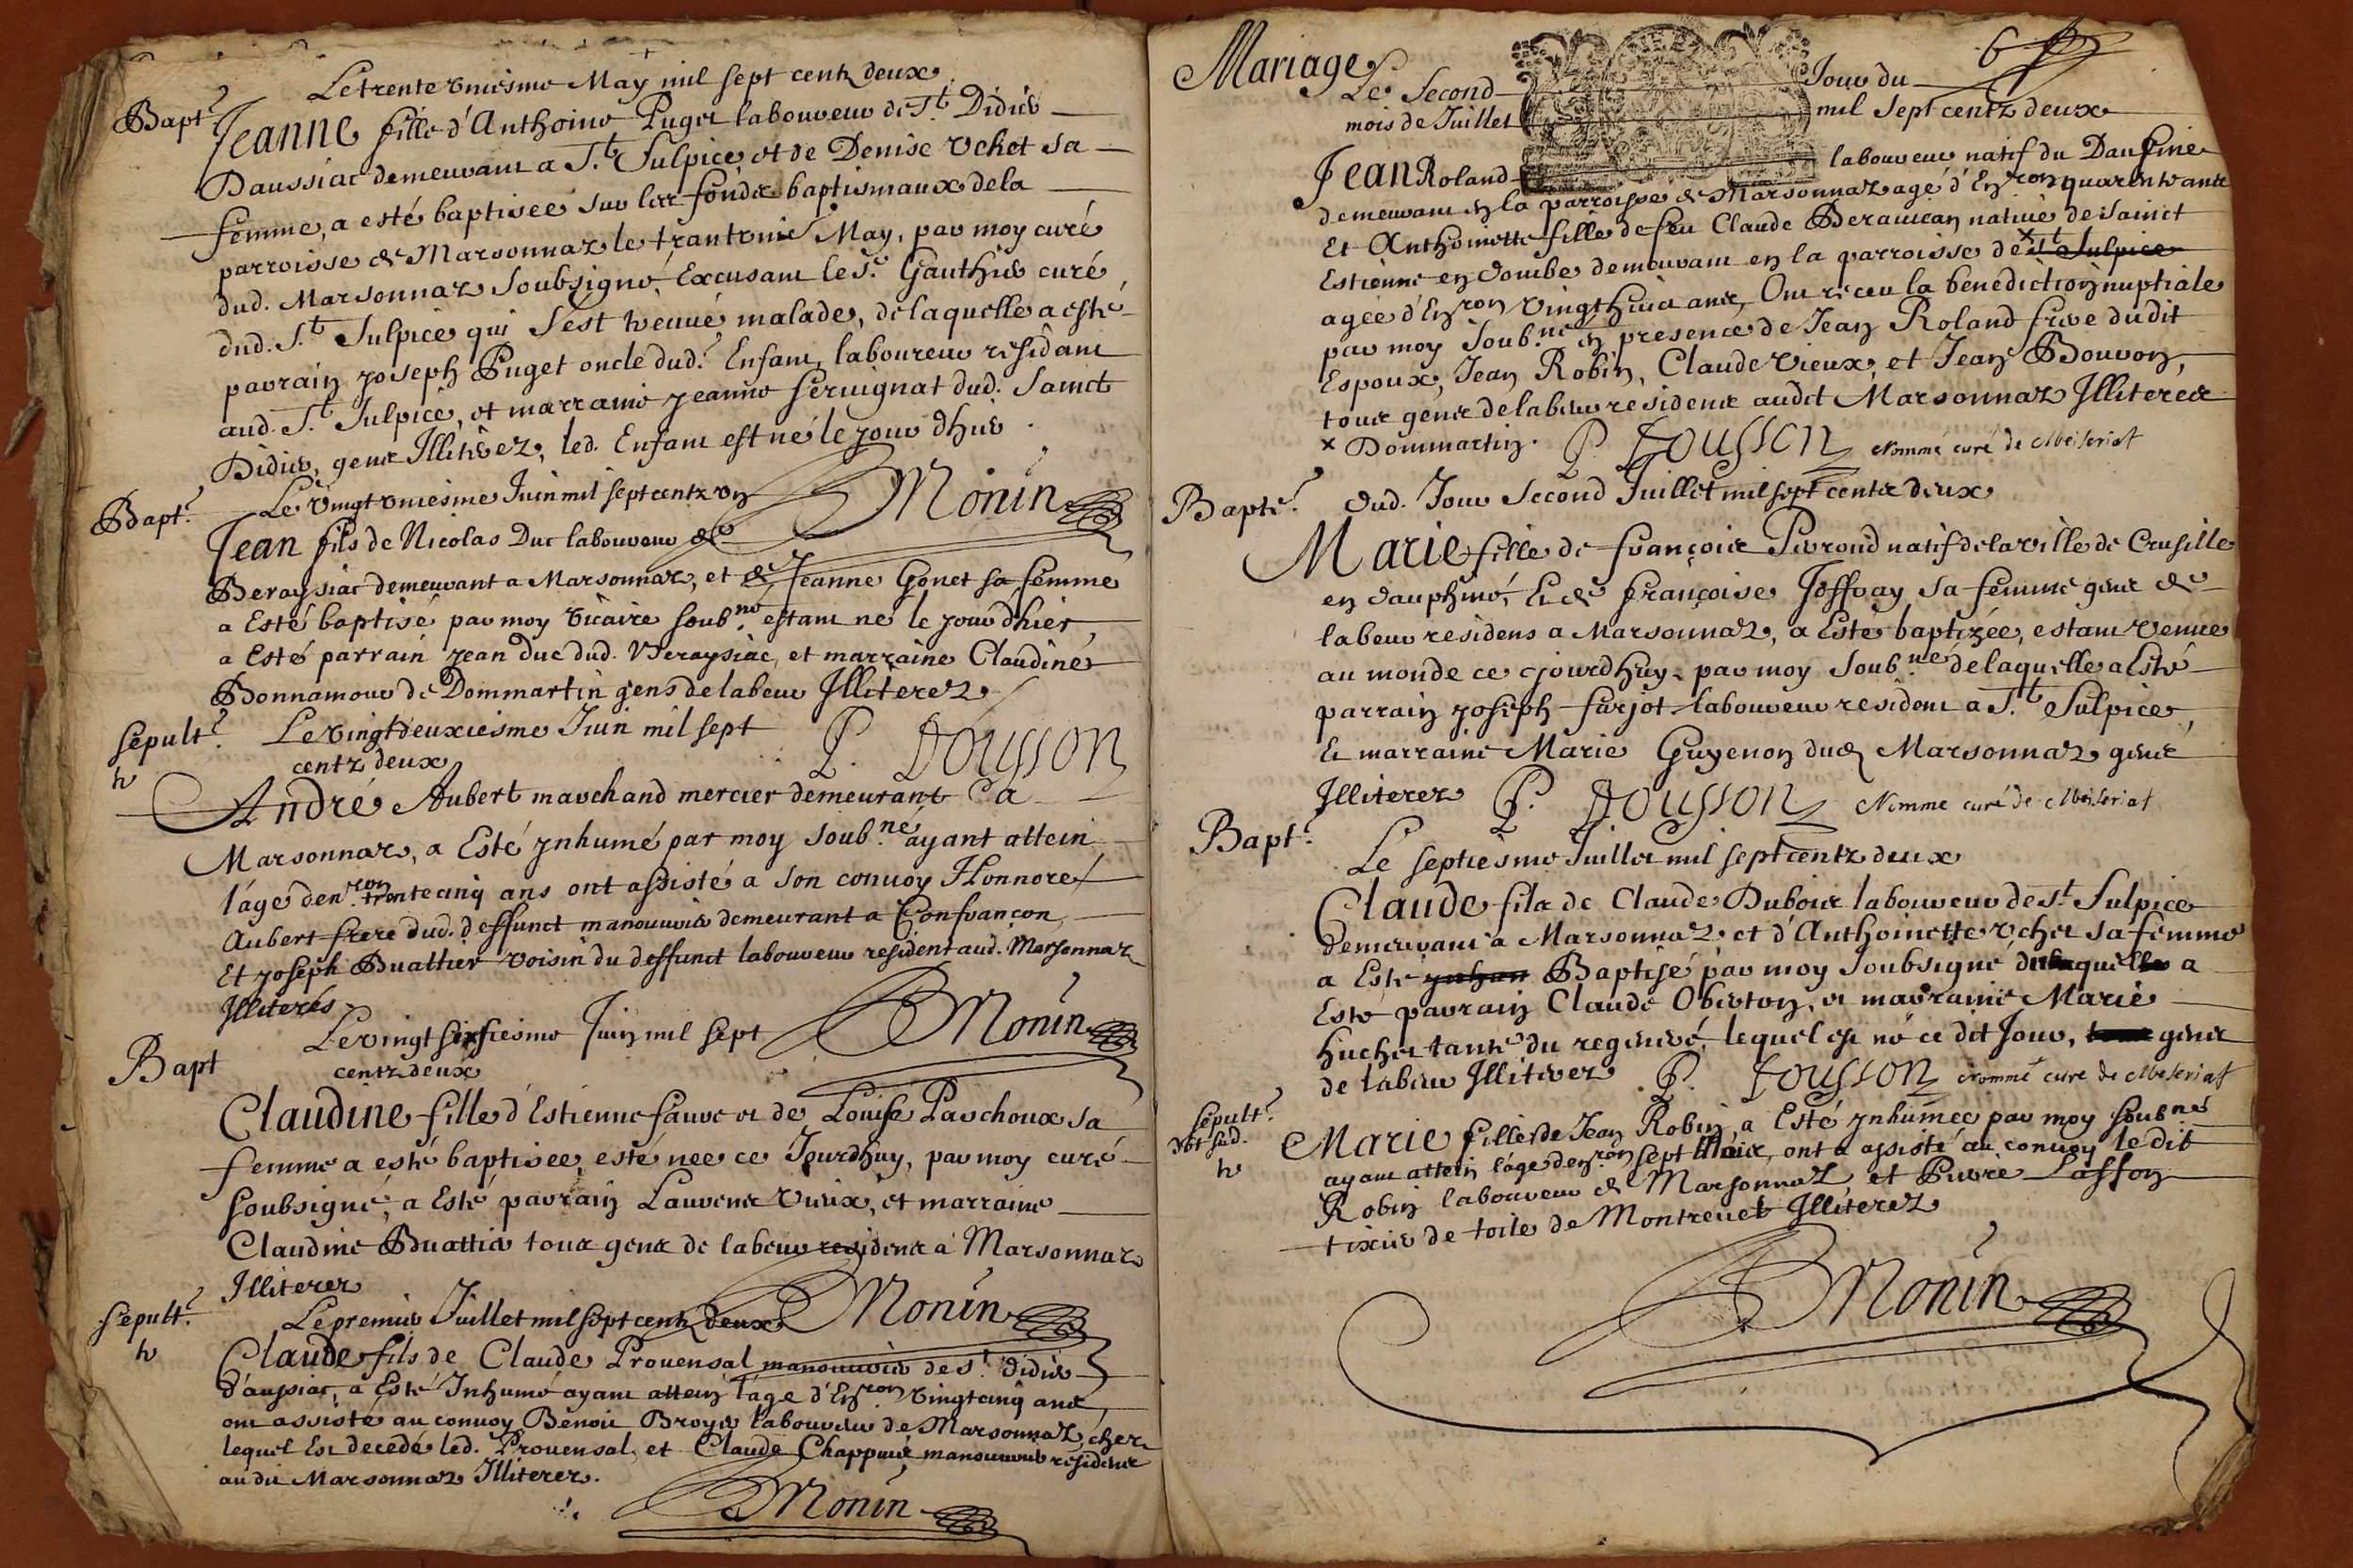 Le trente vniesme May mil sept centz deux
Bapt.e
Jeanne fille d'Anthoine Puget laboureur de S.t Didier
Daussiac demeurant a S.t Sulpice et de Denise Vchet sa
femme, a esté baptisée sur les fonds baptismaux de la
parroisse de Marsonnaz le trantvnie May, par moy curé
dud. Marsonnaz soubsigné Excusant le S.r Gauthier curé
dud. S.t Sulpice qui s'est treuué malade, de laquelle a esté
parrain joseph Puget oncle dud. Enfant, laboureur residant
aud. S.t Sulpice, et marraine jeanne seruignat dud. Sainct
Didier, gens Illiterez, led. Enfant est né le jour dhier.
Bapt.e
Le vingtvniesme Juin mil sept centz vn
Monin
Jean fils de Nicolas Duc laboureur de
Beraysiac demeurant a Marsonnaz, et de Jeanne Gonet sa femme
a Esté baptisé par moy vicaire soub.né estant né le jour dhier
a Esté parrain jean duc dud. Veraysiac, et marraine Claudine
Bonnamour de Dommartin gens de labeur Illiterez
sepult.e
h
Le vingtdeuxiesme Juin mil sept
centz deux
P. Dousson
André Aubert marchand mercier demeurant a
Marsonnaz, a Esté ynhumé par moy soub.né ayant attein
l'age den.ron trentecinq ans ont assisté a son conuoy Honnoré
Aubert frere dud. deffunct manouurier demeurant a Confrançon
Et joseph Buattier voisin du deffunct laboureur resident aud. Marsonnaz
Illiterés
Bapt
Le vingt sixsiesme Juin mil sept
centz deux
Monin
Claudine fille d'Estienne fauvre et de Louise Parchoux sa
femme a esté baptisee, esté née ce Jourdhuy, par moy curé
soubsigné, a Esté parrain Laurent Vieux, et marraine
Claudine Buattier tous gens de labeur residents a Marsonnaz
Illiterez
sepult.e
h
Le premier Juillet mil sept centz deux
Monin
Claude fils de Claude Prouensal manouurier de S.t didier
d'aussiac, a Esté Inhumé ayant attein l'age d'En.ron vingtcinq ans,
ont assisté au conuoy Benoit Broyer laboureur de Marsonnaz, chez
lequel Est decedé led. Prouensal, et Claude Chappuis manouurier residents
audit Marsonnaz Illiterez.
Monin
Mariage
6
Le Second Jour du
mois de Juillet mil Sept centz deux
Jean Roland laboureur natif du Daufiné
demeurant en la parroisse de Marsonnaz agé d'En.ron quarente ans
Et Anthoinette fille de feu Claude natiue de Sainct
Estienne en dombe demeurant en la parroisse de x St Sulpice
agée d'En.ron Vingthuict ans, Ont receu la benediction nuptiale
par moy soub.né en presence de Jean Roland frere dudit
Espoux, Jean Robin, Claude Vieux, et Jean Bouvon,
tous gens de labeur residents audit Marsonnaz Illiterez
x Dommartin. P. Dousson Nommé curé de Meiseriat
Bapte.e
dud. Jour Second Juillet mil sept centz deux
Marie fille de françois Perroud natif de la ville de Crusille
en dauphiné, Et de françoise Joffray sa femme gens de
labeur residens a Marsonnaz, a Esté baptizée, estant Venue
au monde ce cjourdhuy, par moy soub.né de laquelle a Esté
parrain joseph furjot laboureur resident a S.t Sulpice,
Et marraine Marie Guyenon dud Marsonnaz gens
Illiterez P. Dousson Nommé curé de Meiseriat
Bapt.e
Le septiesme Juillet mil sept centz deux
Claude fils de Claude Dubois laboureur de S.t Sulpice
demeurant a Marsonnaz et d'Anthoinette Vchet sa femme
a Esté Baptisé par moy soubsigné duquel a
Esté parrain Claude Obierton, et marraine Marie
huchet tante du regeneré, lequel est né ce dit Jour, gens
de labeur Illiterez P. Dousson nommé curé de Meiseriat
sepult.e
h
Marie fille de Jean Robin a Esté ynhumée par moy soub.né
ayant attein l'age den.ron sept Mois, ont assisté au conuoy ledit
Robin laboureur de Marsonnaz et Pierre Lasson
tixier de toile de Montreuel Illiterez
Monin